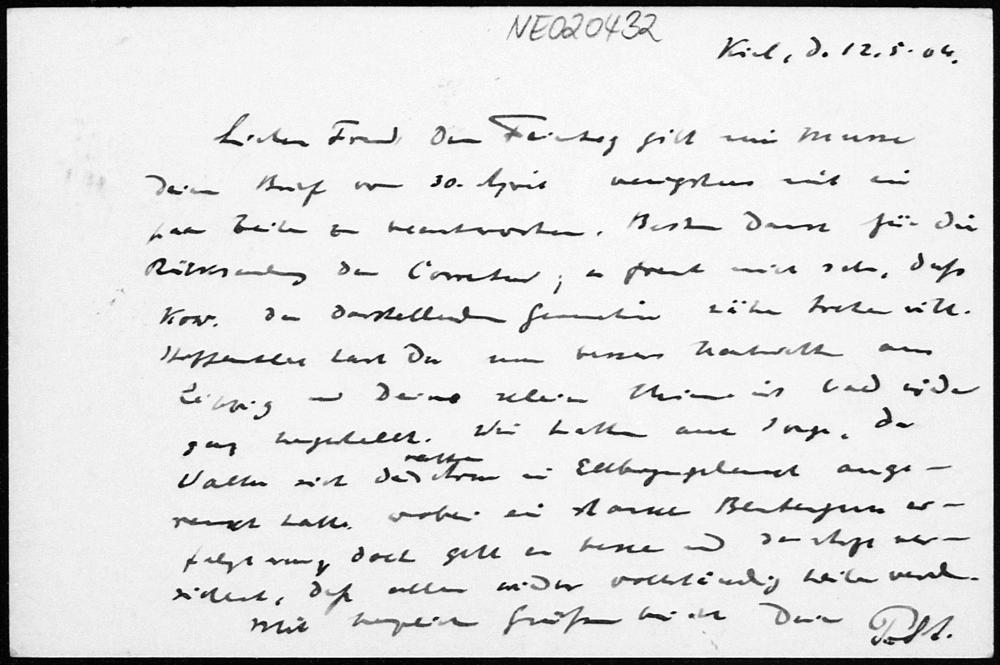 NE020432
Kiel, d. 12.5.04.
Lieber Freund, Der Feiertag giebt mir Musse
Deinen Brief vom 30. April wenigstens mit ein
paar Zeilen zu beantworten. Besten Dank für die
Rücksendung der Correctur; es freut mich sehr, daß
Kow. der darstellenden Geometrie näher treten will.
Hoffentlich hast Du nun bessere Nachrichten aus
Leipzig und Deine kleine ist bald wieder
ganz hergestellt. Wir hatten auch Sorge, da
Walter sich den rechten Arm im Ellbogengelenk ausge-
renkt hatte, wobei ein starker Bluterguss er-
folgt war; doch geht es besser und der Arzt ver-
sichert, daß alles wieder vollständig heilen werde.
Mit herzlichen Grüßen bin ich Dein